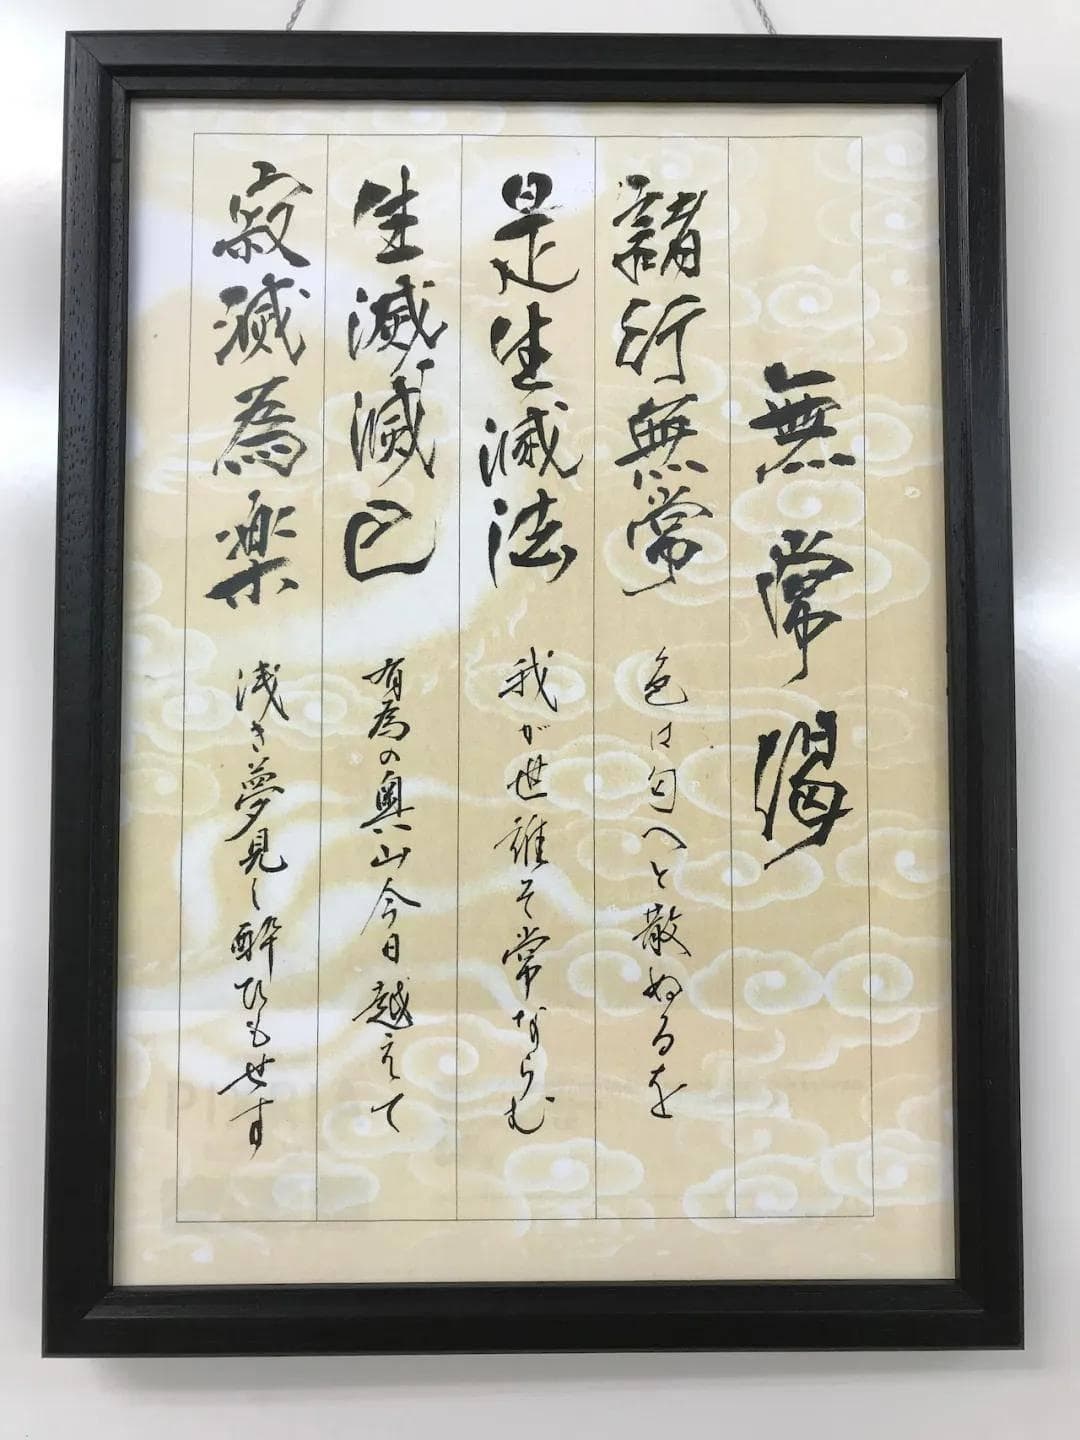 無常偈
諸行無常 色は匂へと散ぬるを
是生滅法 我が世誰そ常ならむ
生滅滅已 有為の奥山今日越えて
寂滅為楽 浅き夢見し酔ひもせす